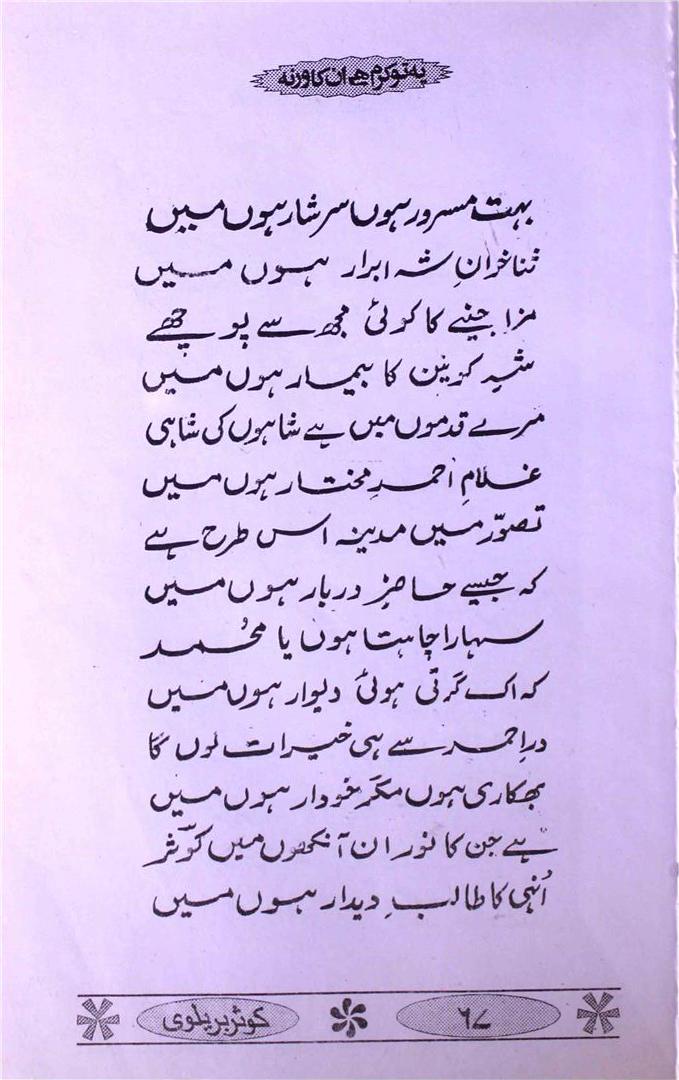 یہ تو کرم ہے ان کا ورنہ
بہت مسرور ہوں سرشار ہوں میں
ثنا خوانِ شہ ابرار ہوں میں
مزا جینے کا کوئی مجھ سے پوچھے
شہِ کونین کا بیمار ہوں میں
مرے قدموں میں ہے شاہوں کی شاہی
غلامِ احمدِ مختار ہوں میں
تصوّر میں مدینہ اس طرح ہے
کہ جیسے حاضرِ دربار ہوں میں
سہارا چاہتا ہوں یا محمد
کہ اک گرتی ہوئی دیوار ہوں میں
درِ احمد سے ہی خیرات لوں گا
بھکاری ہوں مگر خوددار ہوں میں
ہے جن کا نور ان آنکھوں میں کوثر
اُنہی کا طالبِ دیدار ہوں میں
۶۷
کوثر بریلوی